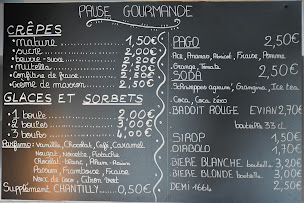 PAUSE GOURMANDE
CRÊPES
• nature 1,50€
• sucre 2,00€
• beurre-sucre 2,20€
• nutella 2,50€
• Confiture de fraise 2,50€
• Crème de marron 2,50€
GLACES ET SORBETS
1 boule 2,00€
2 boules 3,00€
3 boules 4,00€
Parfums: Vanille, Chocolat, Café, Caramel
Nougat, Noisette, Pistache
Chocolat-blanc, Rhum-Raisin
Fraise
Noix de coco, Citron vert
Supplément CHANTILLY 0,50€
PAGO 2,50€
Ace, Ananas, Abricot, Fraise, Pomme
Orange, Tomate
SODA 2,50€
Schweppes agrum', Orangina, Ice tea
Coca, Coca zéro
BADOIT ROUGE EVIAN 2,70€
bouteille 33 cl
SIROP 1,50€
DIABOLO 1,70€
BIERE BLANCHE bouteille 3,20€
BIERE BLONDE bouteille 3,00€
DEMI 1664 2,50€